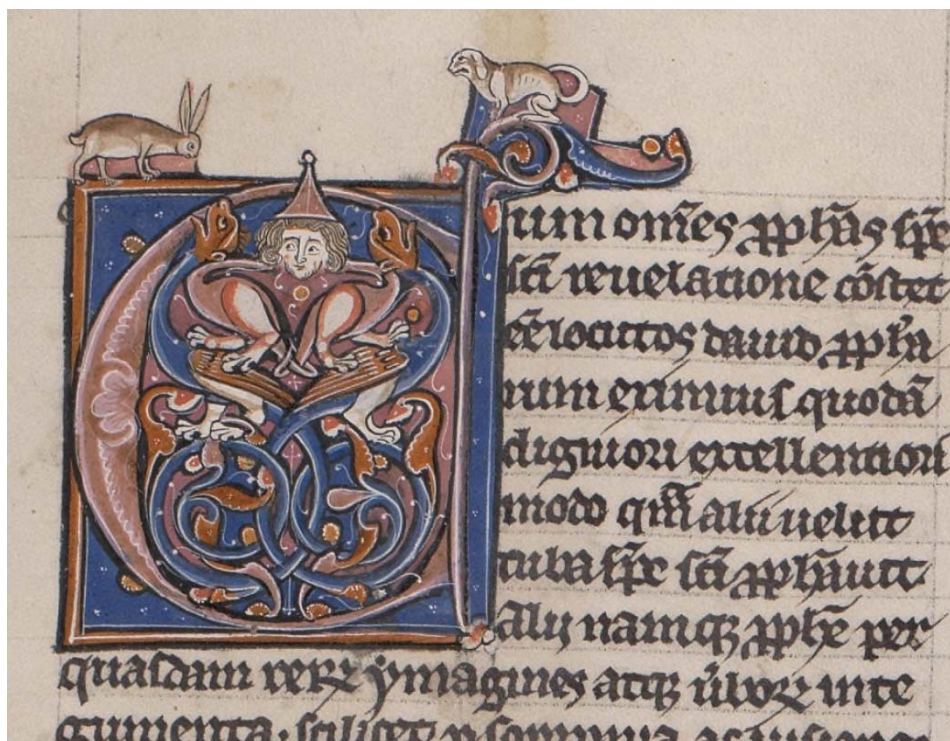 Cum om̅es ꝓph̅as sp̅c
sc̅i reuelatione co̅stet
ee̅ locutos dauid ꝓph̅a
rum eximius quoda̅
digniori excellentiori
modo qm̅ alii uelut
tuba sp̅c sc̅i ꝓph̅auit
Alij namqꝫ ꝓph̅e per
quasdam reꝝ ymagines atqꝫ u̅boꝝ inte
gumenta. scilicet ꝑ sompnia